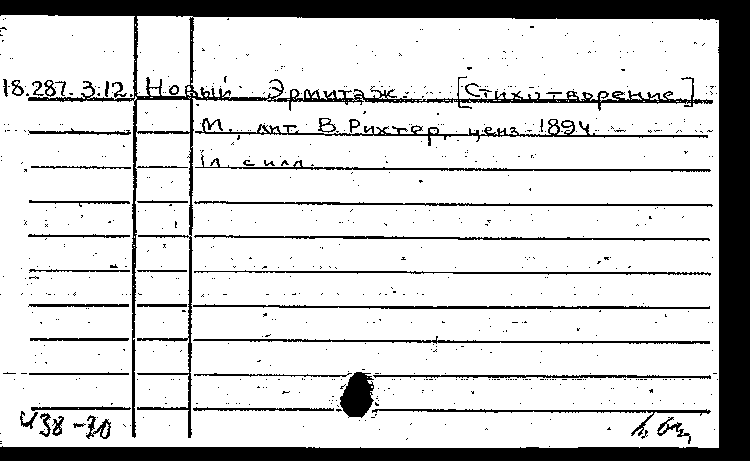 18.287.3.12. Новый Эрмитаж. [Стихотворение]
М., лит. В. Рихтер, ценз. 1894.
1л. с илл.